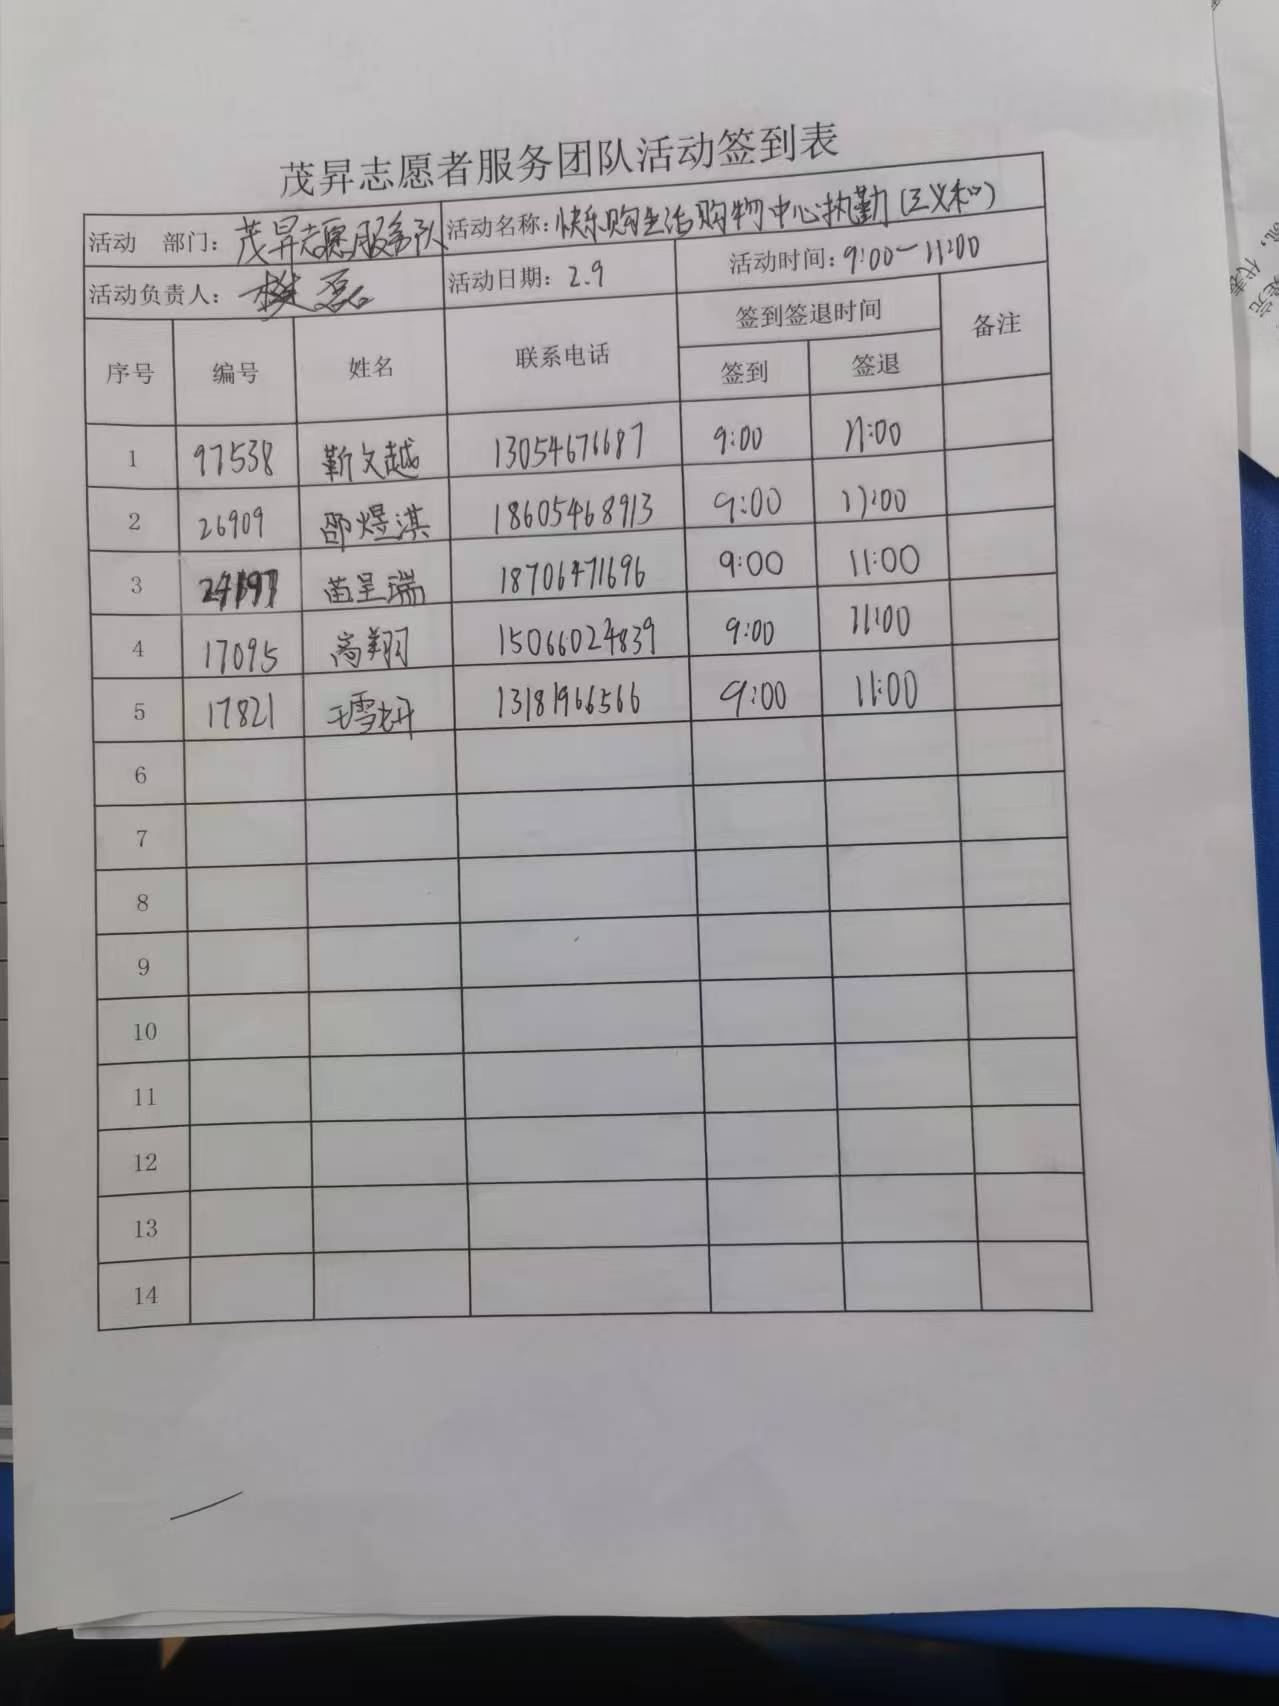 茂昇志愿者服务团队活动签到表
活动 部门：茂昇志愿服务队 活动名称：快乐购生活购物中心执勤（三义和）
活动负责人：樊磊 活动日期：2.9 活动时间：9:00-11:00
序号 编号 姓名 联系电话 签到签退时间 备注
签到 签退
1 97538 靳文越 13054676687 9:00 11:00
2 26909 邵煜淇 18605468913 9:00 11:00
3 苗呈瑞 18706471696 9:00 11:00
4 17095 高翔 15066024839 9:00 11:00
5 17821 王雪妍 13181966566 9:00 11:00
6
7
8
9
10
11
12
13
14